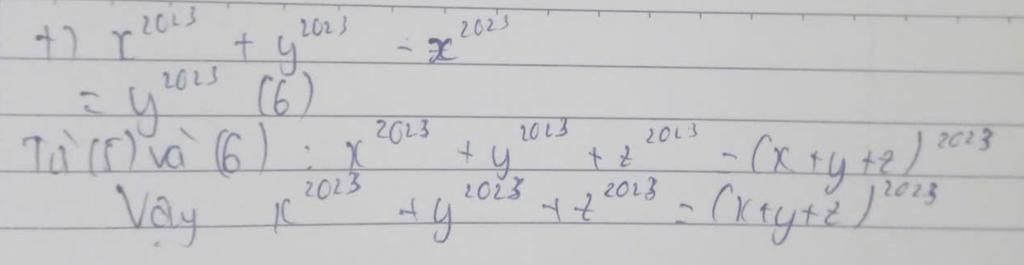 +) x²⁰²³ + y²⁰²³ - x²⁰²³
= y²⁰²³ (6)
Từ (5) và (6) : x²⁰²³ + y²⁰²³ + z²⁰²³ = (x+y+z)²⁰²³
Vậy x²⁰²³ + y²⁰²³ + z²⁰²³ = (x+y+z)²⁰²³